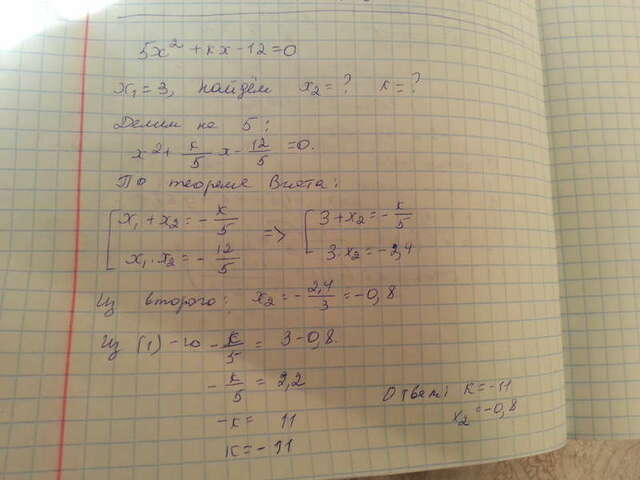 5x² + кx - 12 = 0
x₁ = 3, найдём x₂ = ? к = ?
Делим на 5:
x² + к/5 x - 12/5 = 0.
По теореме Виета:
[ x₁ + x₂ = - к/5 => [ 3 + x₂ = - к/5
x₁ · x₂ = - 12/5 3 · x₂ = -2,4
Из второго: x₂ = - 2,4/3 = -0,8
Из (1)-го - к/5 = 3 - 0,8.
- к/5 = 2,2
-к = 11
к = -11
Ответ: к = -11
x₂ = -0,8